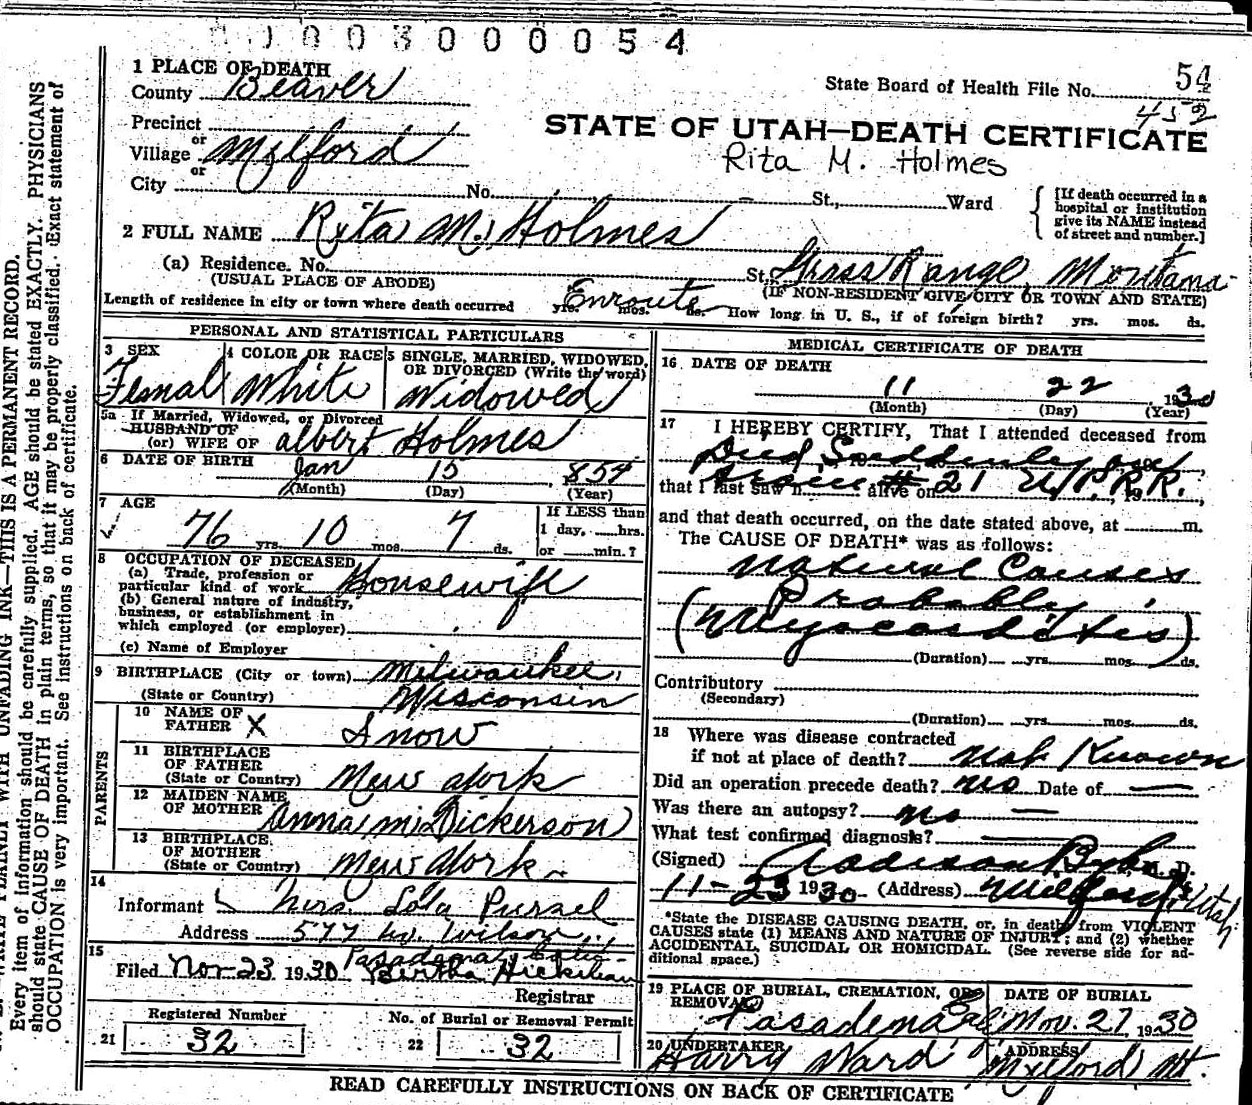 0003000054
1 PLACE OF DEATH
County Beaver
State Board of Health File No. 54
452
Precinct
or
Village Milford
or
City No. St., Ward
STATE OF UTAH—DEATH CERTIFICATE
Rita M. Holmes
[If death occurred in a
hospital or institution
give its NAME instead
of street and number.]
2 FULL NAME Rita M. Holmes
(a) Residence. No. St., Grass Range, Montana
(USUAL PLACE OF ABODE) (IF NON-RESIDENT GIVE CITY OR TOWN AND STATE)
Length of residence in city or town where death occurred Enroute yrs. mos. ds. How long in U. S., if of foreign birth? yrs. mos. ds.
PERSONAL AND STATISTICAL PARTICULARS
3 SEX 4 COLOR OR RACE 5 SINGLE, MARRIED, WIDOWED,
OR DIVORCED (Write the word)
Femal White Widowed
5a If Married, Widowed, or Divorced
HUSBAND OF
(or) WIFE OF albert Holmes
6 DATE OF BIRTH Jan 15 1854
(Month) (Day) (Year)
7 AGE
76 yrs. 10 mos. 7 ds.
If LESS than
1 day, hrs.
or min.?
8 OCCUPATION OF DECEASED
(a) Trade, profession or
particular kind of work Housewife
(b) General nature of industry,
business, or establishment in
which employed (or employer)
(c) Name of Employer
9 BIRTHPLACE (City or town) Milwaukee,
(State or Country) Wisconsin
PARENTS
10 NAME OF
FATHER X Snow
11 BIRTHPLACE
OF FATHER
(State or Country) New York
12 MAIDEN NAME
OF MOTHER Anna M. Dickerson
13 BIRTHPLACE
OF MOTHER
(State or Country) New York
14
Informant Mrs. Lola Pursel
Address 577 W. Wilson
Pasadena, Calif
15
Filed Nov 23 1930 Bertha
Registrar
Registered Number No. of Burial or Removal Permit
21 32 22 32
MEDICAL CERTIFICATE OF DEATH
16 DATE OF DEATH
11 22 1930
(Month) (Day) (Year)
17 I HEREBY CERTIFY, That I attended deceased from
Died Suddenly on
that I last saw h alive on Train # 21 U.P.R.R. 19
and that death occurred, on the date stated above, at m.
The CAUSE OF DEATH* was as follows:
Natural Causes
Probably
(Myocarditis)
(Duration) yrs. mos. ds.
Contributory
(Secondary)
(Duration) yrs. mos. ds.
18 Where was disease contracted
if not at place of death? Not Known
Did an operation precede death? no Date of —
Was there an autopsy? no —
What test confirmed diagnosis? —
(Signed) M. D.
11-23 1930 (Address) Milford, Utah
*State the DISEASE CAUSING DEATH, or, in death from VIOLENT
CAUSES state (1) MEANS AND NATURE OF INJURY; and (2) whether
ACCIDENTAL, SUICIDAL OR HOMICIDAL. (See reverse side for ad-
ditional space.)
19 PLACE OF BURIAL, CREMATION, OR
REMOVAL
Pasadena Cal
DATE OF BURIAL
Nov. 27, 1930
20 UNDERTAKER
Harry Ward
ADDRESS
Milford, Ut.
READ CAREFULLY INSTRUCTIONS ON BACK OF CERTIFICATE
WRITE PLAINLY WITH UNFADING INK—THIS IS A PERMANENT RECORD.
Every item of information should be carefully supplied. AGE should be stated EXACTLY. PHYSICIANS
should state CAUSE OF DEATH in plain terms, so that it may be properly classified. Exact statement of
OCCUPATION is very important. See instructions on back of certificate.